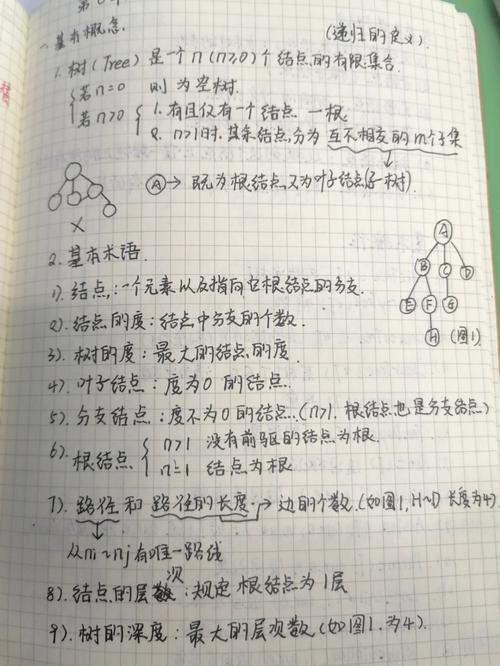 一、基本概念.
(递归的定义).
1. 树(Tree) 是一个n(n≥0)个结点的有限集合.
若n=0 则为空树.
若n>0 1. 有且仅有一个结点 一根
2. n>1时, 其余结点,分为 互不相交的m个子集
A → 既为根结点又为叶子结点(子树).
×
2. 基本术语.
1). 结点: 一个元素以及指向它根结点的分支.
2). 结点的度: 结点中分支的个数.
3). 树的度: 最大的结点的度.
4). 叶子结点: 度为0的结点.
5). 分支结点: 度不为0的结点. (n>1, 根结点也是分支结点)
6). 根结点 n>1 没有前驱的结点为根.
n=1 结点为根
A
B C D
E F G
H (图1)
7). 路径 和 路径的长度. → 边的个数. (如图1, H~D 长度为4).
从ni~nj有唯一路线
8). 结点的层次: 规定 根结点为1层
9). 树的深度: 最大的层次数 (如图1. 为4).